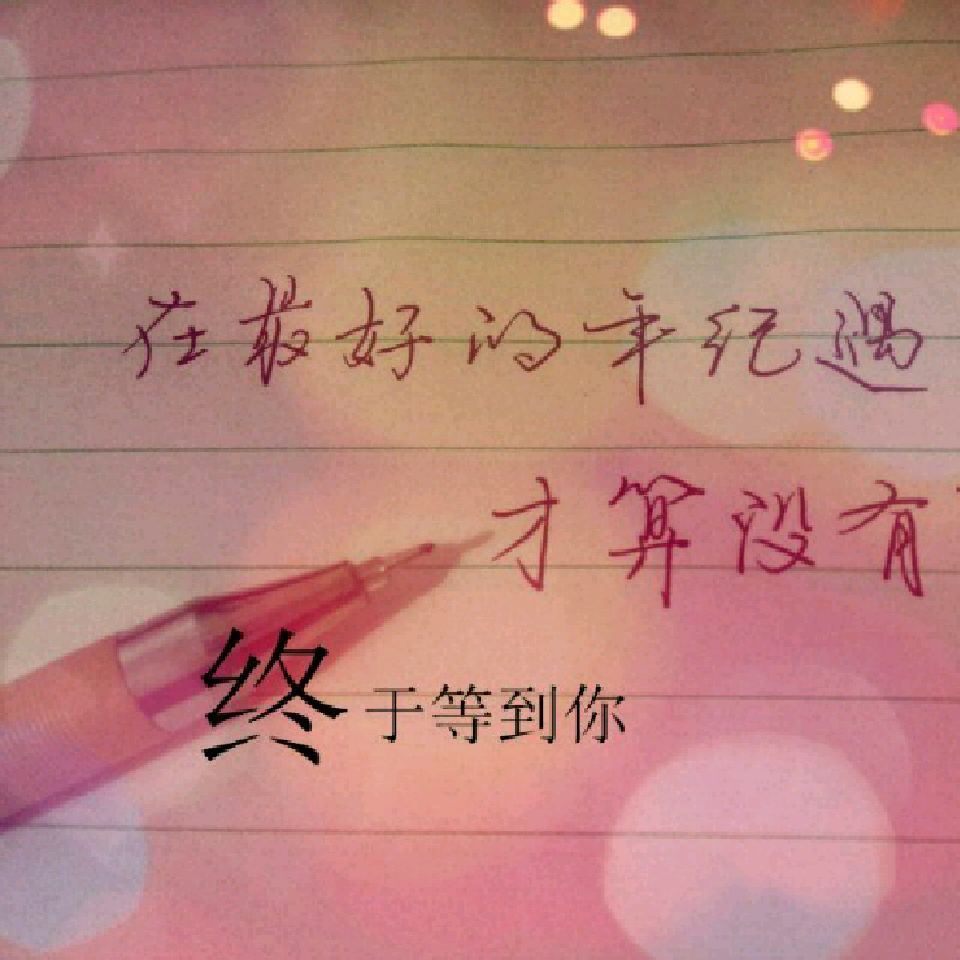 在最好的年纪遇
才算没有
终于等到你